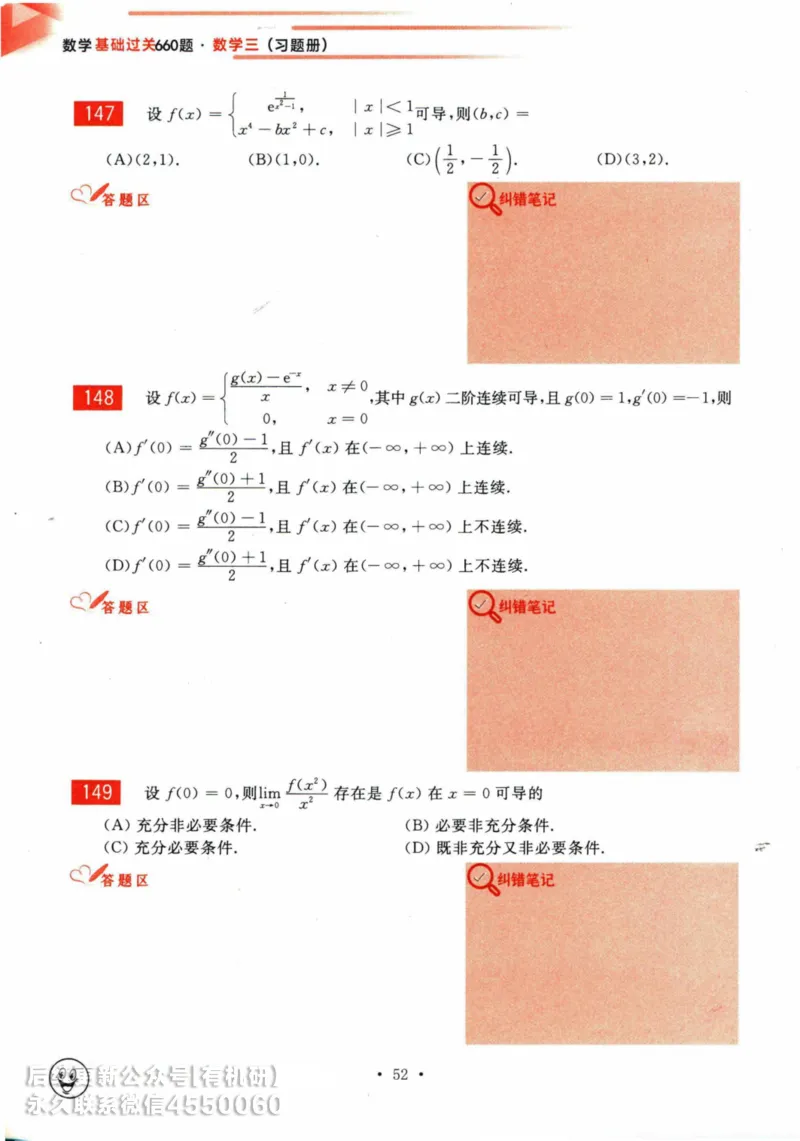 数学基础过关660题·数学三(习题册)
147 设 f(x) = { e^{\frac{1}{x^2-1}}, |x|<1
x^4-bx^2+c, |x|≥1 可导,则(b,c)=
(A)(2,1). (B)(1,0). (C)(\frac{1}{2},-\frac{1}{2}). (D)(3,2).
答题区 纠错笔记
148 设 f(x) = { \frac{g(x)-e^{-x}}{x}, x≠0
0, x=0 ,其中 g(x) 二阶连续可导,且 g(0)=1,g′(0)=-1,则
(A)f′(0) = \frac{g″(0)-1}{2},且 f′(x) 在(-∞,+∞) 上连续.
(B)f′(0) = \frac{g″(0)+1}{2},且 f′(x) 在(-∞,+∞) 上连续.
(C)f′(0) = \frac{g″(0)-1}{2},且 f′(x) 在(-∞,+∞) 上不连续.
(D)f′(0) = \frac{g″(0)+1}{2},且 f′(x) 在(-∞,+∞) 上不连续.
答题区 纠错笔记
149 设 f(0)=0,则\lim_{x→0} \frac{f(x^2)}{x^2} 存在是 f(x) 在 x=0 可导的
(A) 充分非必要条件. (B) 必要非充分条件.
(C) 充分必要条件. (D) 既非充分又非必要条件.
答题区 纠错笔记
· 52 ·
后续更新公众号[有机研]
永久联系微信4550060